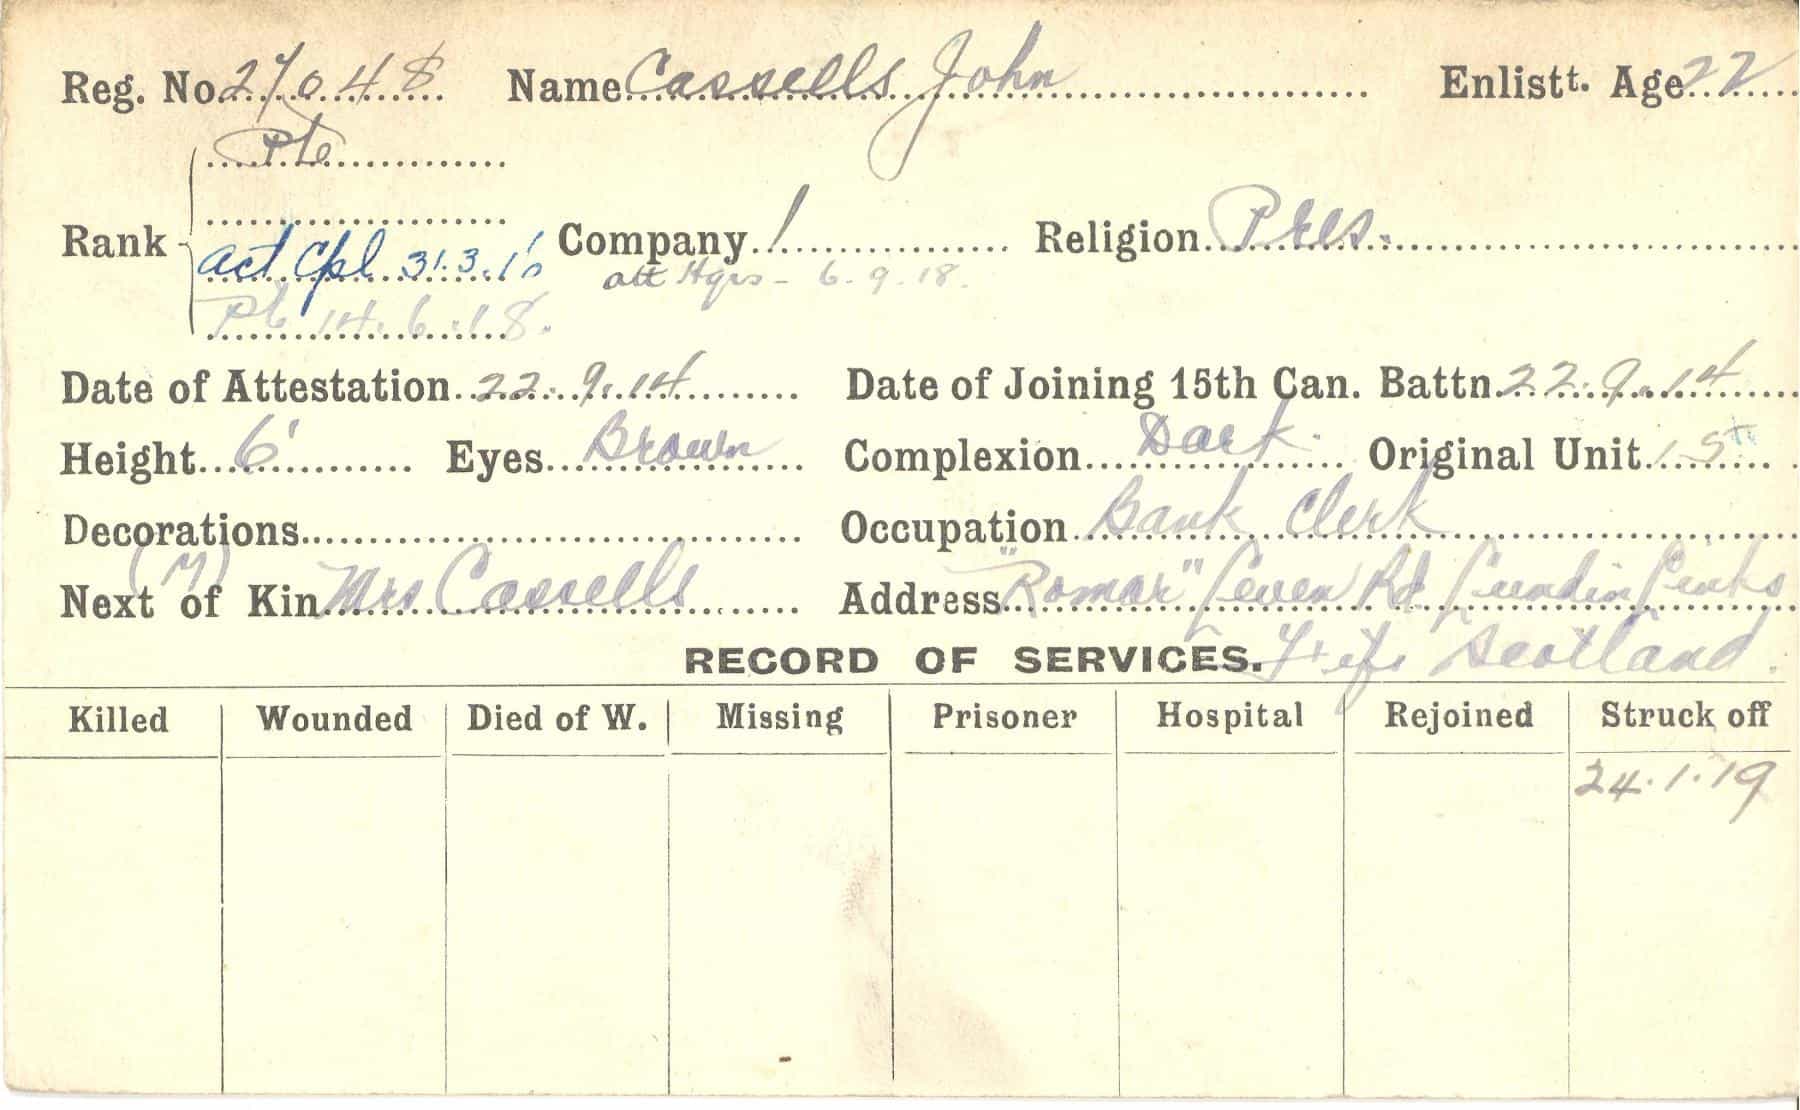 Reg. No. 27048 Name Cassells John Enlistt. Age 22
Pte
Rank Act Cpl 31.3.16 Company 1 Religion Pres.
att Hqrs - 6.9.18.
Pte 14.6.18.
Date of Attestation 22.9.14 Date of Joining 15th Can. Battn. 22.9.14
Height 6' Eyes Brown Complexion Dark. Original Unit 15th
Decorations Occupation Bank Clerk
(M)
Next of Kin Mrs Cassells Address "Romar" Leven Rd Lundin Links
Fife Scotland.
RECORD OF SERVICES.
Killed Wounded Died of W. Missing Prisoner Hospital Rejoined Struck off
24.1.19